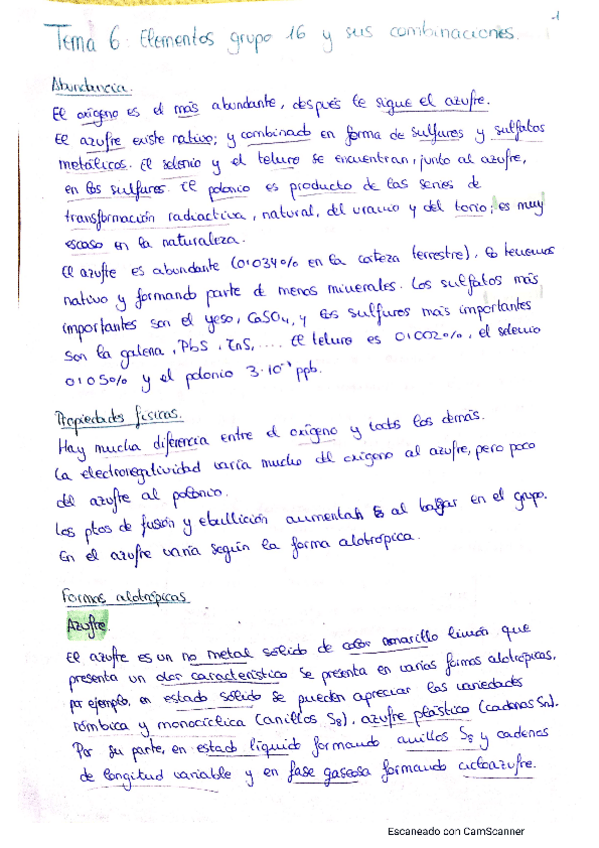 1
Tema 6: Elementos grupo 16 y sus combinaciones.
Abundancia.
El oxígeno es el más abundante, después le sigue el azufre.
El azufre existe nativo; y combinado en forma de sulfuros y sulfatos
metálicos. El selenio y el teluro se encuentran, junto al azufre,
en los sulfuros. El polonio es producto de las series de
transformación radiactiva, natural, del uranio y del torio; es muy
escaso en la naturaleza.
El azufre es abundante (0'034% en la corteza terrestre), lo tenemos
nativo y formando parte de menos minerales. Los sulfatos más
importantes son el yeso, CaSO4, y los sulfuros más importantes
son la galena, PbS, ZnS, .... El teluro es 0'002%, el selenio
0'05% y el polonio 3·10 ppb.
Propiedades físicas.
Hay mucha diferencia entre el oxígeno y todos los demás.
La electronegatividad varía mucho del oxígeno al azufre, pero poco
del azufre al polonio.
Los ptos de fusión y ebullición aumentan al bajar en el grupo.
En el azufre varía según la forma alotrópica.
Formas alotrópicas
Azufre.
El azufre es un no metal sólido de color amarillo limón que
presenta un olor característico se presenta en varias formas alotrópicas,
por ejemplo, en estado sólido se pueden apreciar las variedades
rómbica y monocíclica (anillos S8), azufre plástico (cadenas Sn).
Por su parte, en estado líquido formando anillos S8 y cadenas
de longitud variable y en fase gaseosa formando cicloazufre.
Escaneado con CamScanner